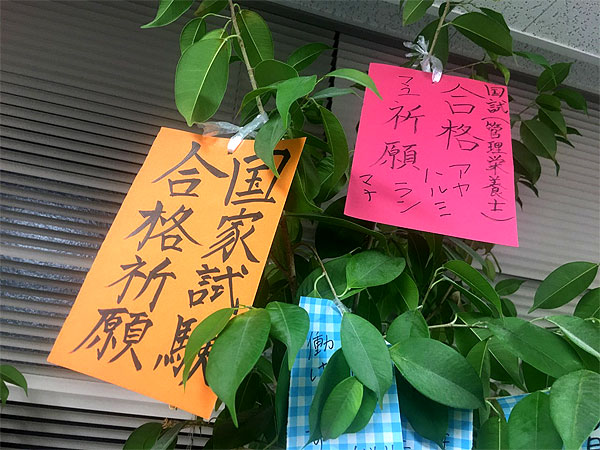 国家試験
合格祈願
国試(管理栄養士)
合格 アヤ
ハルミ
祈願 ラン
働